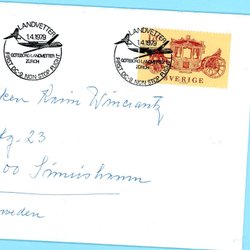 LANDVETTER
1.4.1979
GÖTEBORG-LANDVETTER
ZÜRICH
FIRST DC-9 NON STOP FLIGHT
LANDVETTER
1.4.1979
GÖTEBORG-LANDVETTER
ZÜRICH
FIRST DC-9 NON STOP FLIGHT
SVERIGE
ken Karin
g. 23
00 Simrishamn
weden